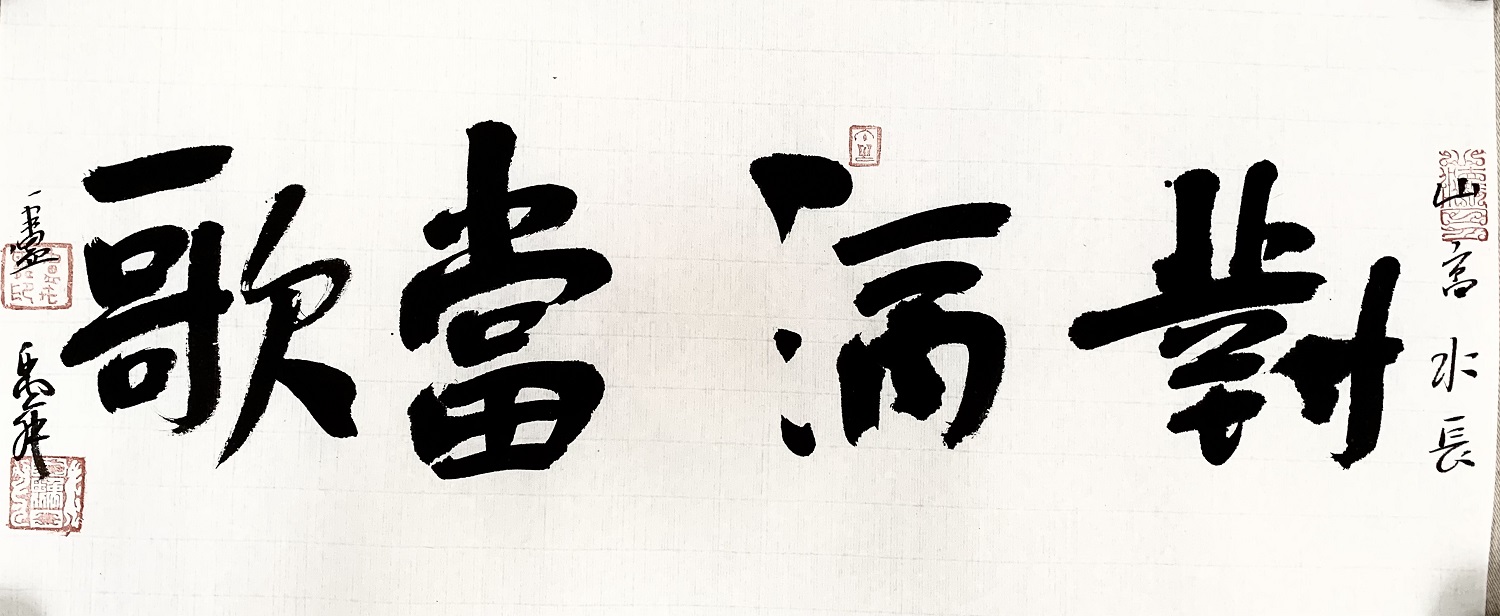 山高水長
對酒當歌